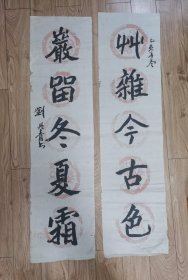 艸雜今古色
巖留冬夏霜
劉